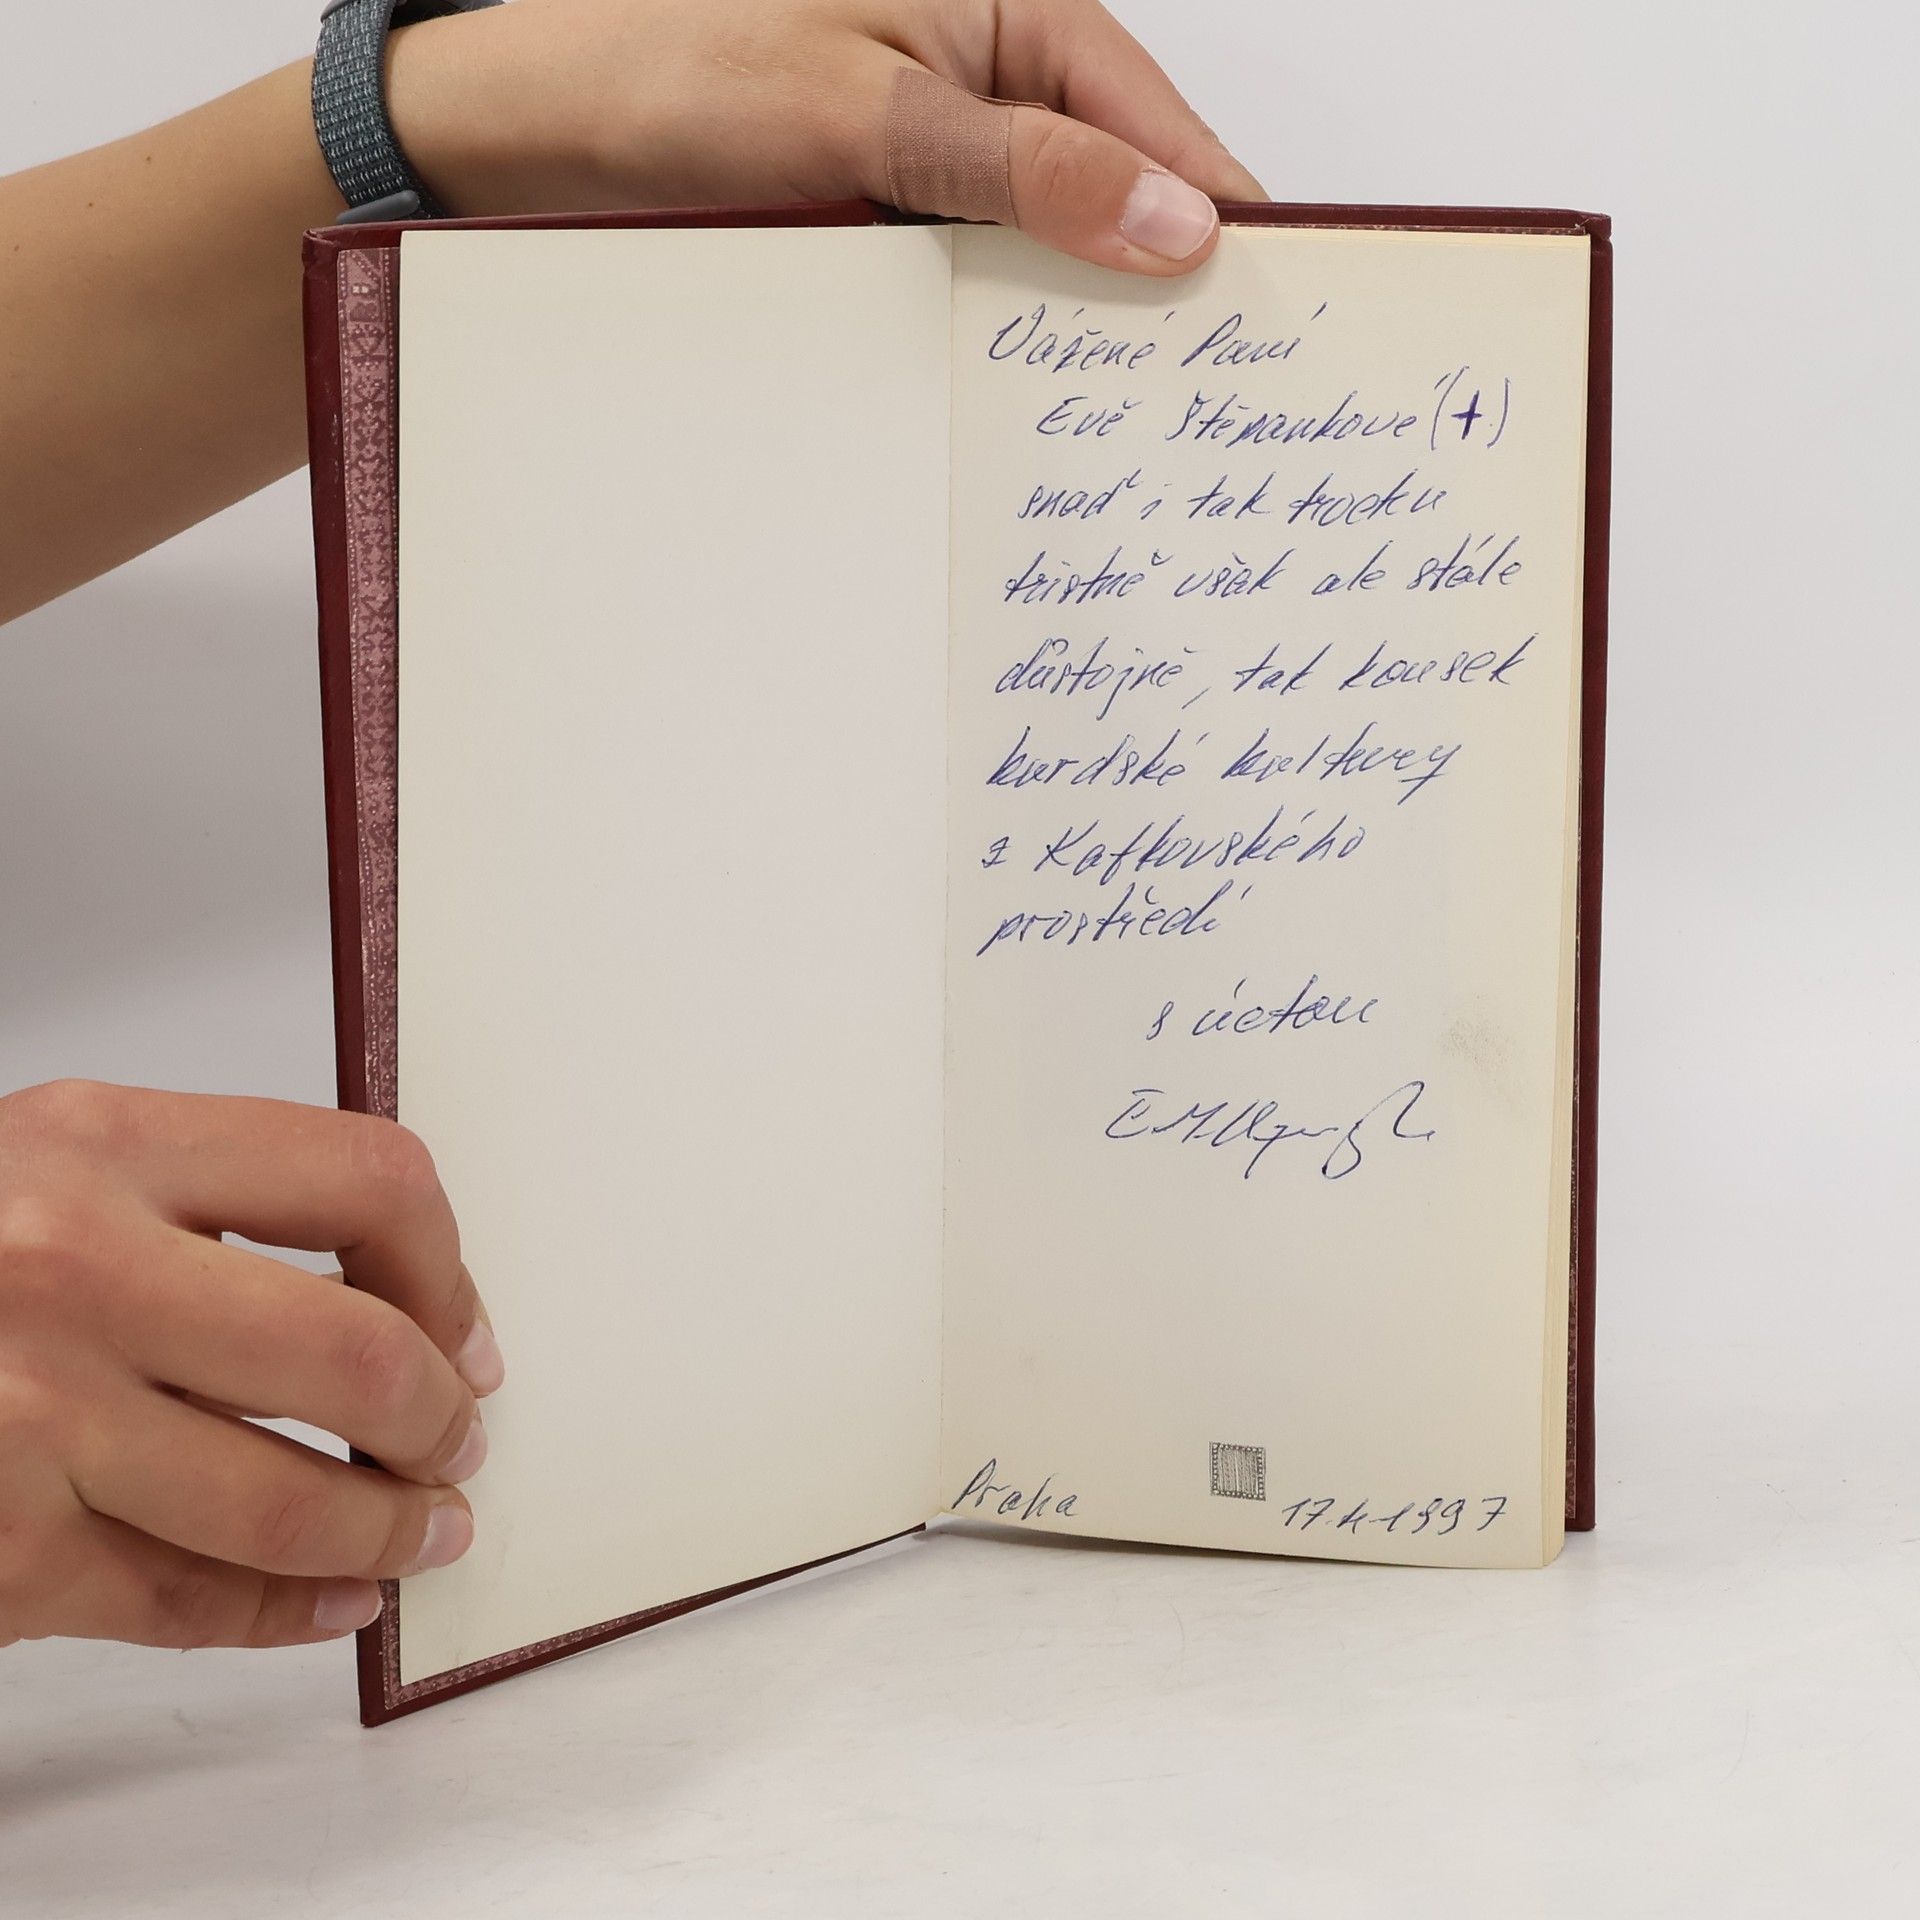 Vážené Paní
Evě Štěpankové (+)
snad i tak trochu
tristně však ale stále
důstojně, tak kousek
kurdské kultury
z Kafkovského
prostředí
s úctou
Praha
1997